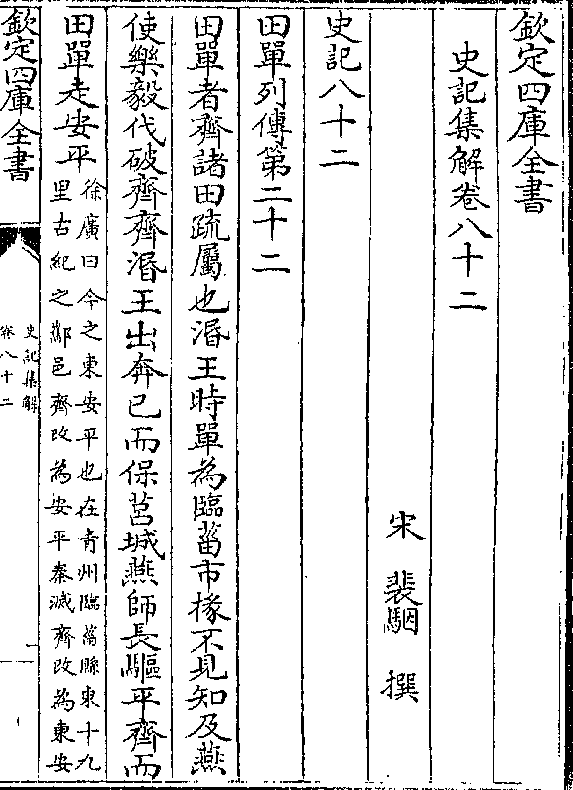 欽定四庫全書
史記集解卷八十二
宋 裴駰 撰
史記八十二
田單列傳第二十二
田單者齊諸田疏屬也湣王時單為臨菑市掾不見知及燕
使樂毅伐破齊齊湣王出奔已而保莒城燕師長驅平齊而
田單走安平
徐廣曰今之東安平也在青州臨菑縣東十九
里古紀之酅邑齊改為安平秦滅齊改為東安
欽定四庫全書
史記集解
卷八十二
一